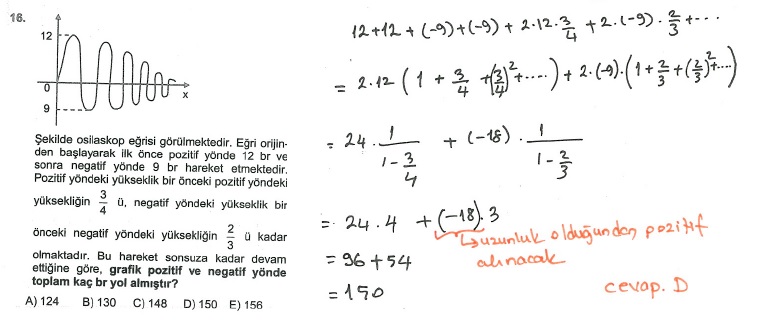 16.
12
0
x
9
Şekilde osilaskop eğrisi görülmektedir. Eğri orijin-
den başlayarak ilk önce pozitif yönde 12 br ve
sonra negatif yönde 9 br hareket etmektedir.
Pozitif yöndeki yükseklik bir önceki pozitif yöndeki
yüksekliğin 3/4 ü, negatif yöndeki yükseklik bir
önceki negatif yöndeki yüksekliğin 2/3 ü kadar
olmaktadır. Bu hareket sonsuza kadar devam
ettiğine göre, grafik pozitif ve negatif yönde
toplam kaç br yol almıştır?
A) 124 B) 130 C) 148 D) 150 E) 156
12+12 + (-9)+(-9) + 2.12.3/4 + 2.(-9).2/3 + ...
= 2.12 (1 + 3/4 + (3/4)² + ....) + 2.(-9).(1 + 2/3 + (2/3)² + ....)
= 24 . 1/(1-3/4) + (-18) . 1/(1-2/3)
= 24.4 + (-18).3
↳ uzunluk olduğundan pozitif
alınacak
= 96+54
= 150
cevap. D